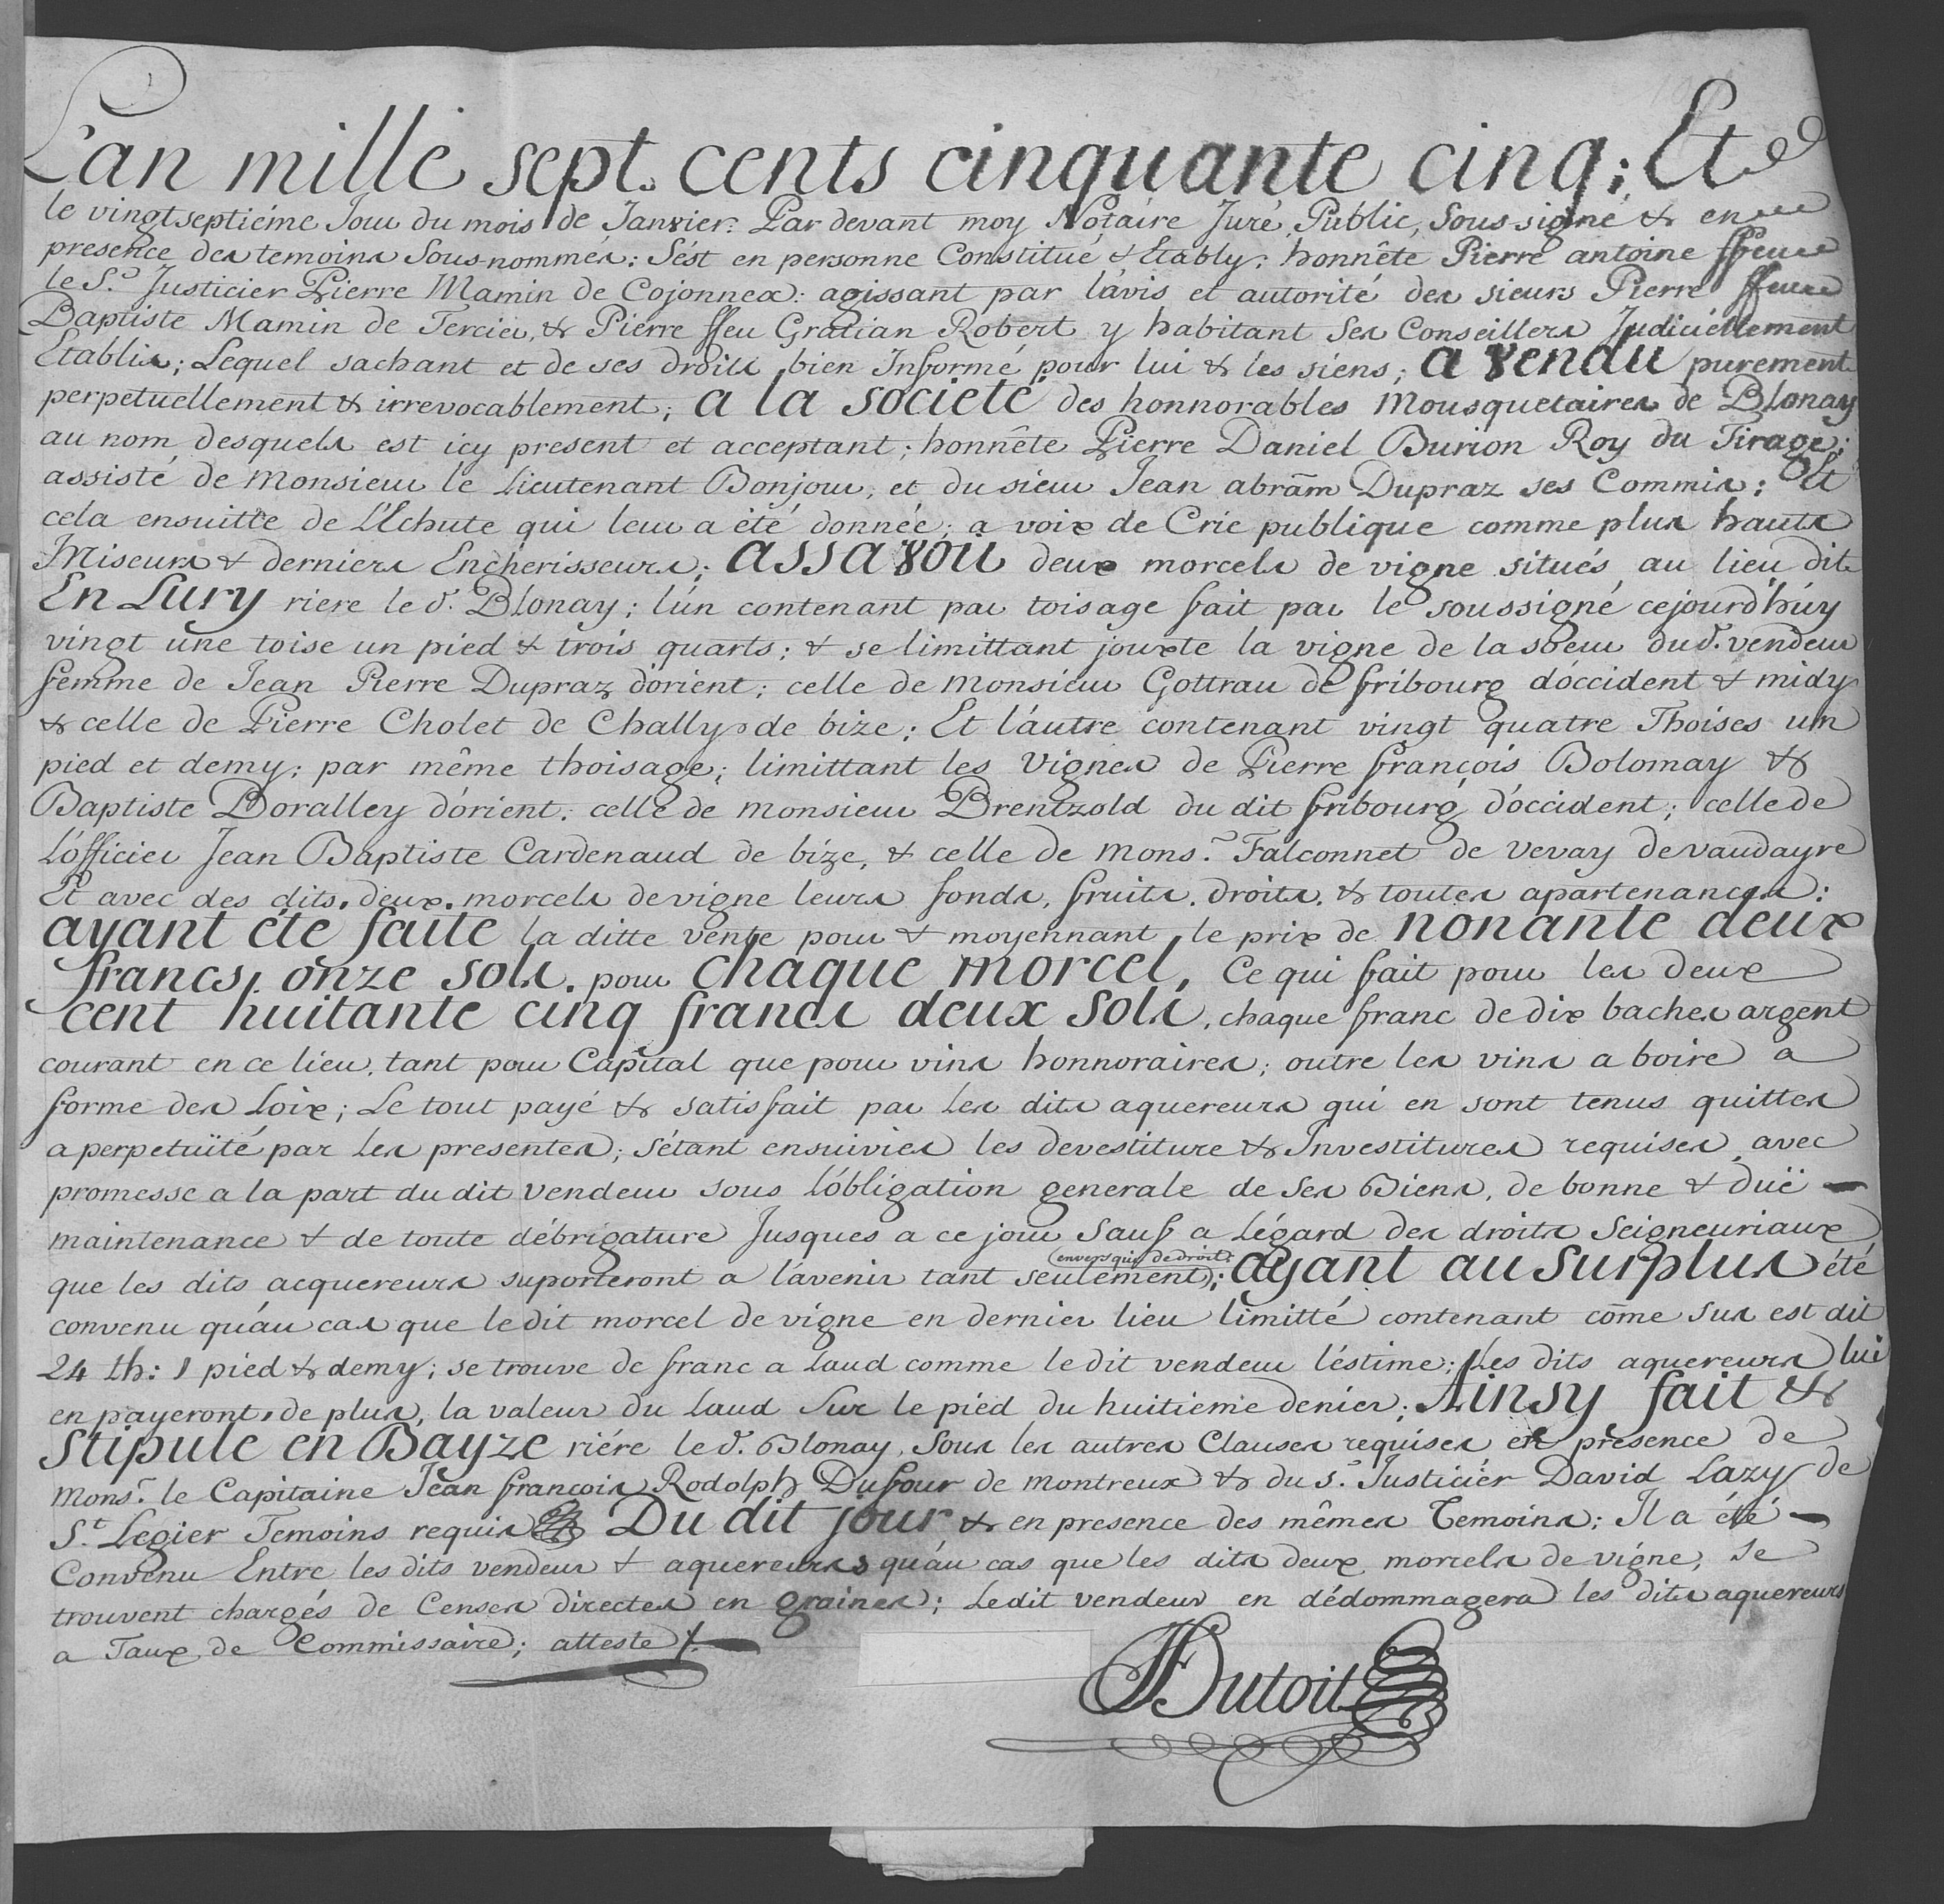 L'an mille sept cents cinquante cinq; Et
le vingtseptiéme Jour du mois de Janvier: Par devant moy Notaire Juré, Public, Soussigné & en
presence des temoins Sousnommés: S'ést en personne Constitué & Etably: honnête Pierre antoine ffeu
le S.r Justicier Pierre Mamin de Cojonnex: agissant par l'avis et autorité des sieurs Pierre ffeu
Baptiste Mamin de Tercier, & Pierre ffeu Gratian Robert y habitant Ses Conseillers Judiciéllement
Etablis; Lequel sachant et de ses droits bien Informé pour lui & les siens; a vendu purement
perpetuellement & irrevocablement; a la societé des honnorables Mousquetaires de Blonay
au nom desquels est icy present et acceptant; honnête Pierre Daniel Burion Roy du Tirage;
assisté de Monsieur le Lieutenant Bonjour, et du sieur Jean abrãm Dupraz ses Commis; Et
cela ensuitte de L'Echute qui leur a été donnée; a voix de Crie publique comme plus hauts
Miseurs & derniers Encherisseurs; assavoir deux morcels de vigne situés au lieu dit
En Lury riere le d. Blonay; l'ún contenant par toisage fait par le soussigné cejourd'húy
vingt une toise un pied & trois quarts; & se limittant jouxte la vigne de la soeur du d. vendeur
femme de Jean Pierre Dupraz d'orient; celle de Monsieur Gottrau de fribourg d'óccident & midy
& celle de Pierre Cholet de Chally de bize; Et l'autre contenant vingt quatre Thoises un
pied et demy; par même thoisage; limittant les Vignes de Pierre françois Bolomay &
Baptiste Doralley d'orient; celle de monsieur Brentzold du dit fribourg d'óccident; celle de
L'officier Jean Baptiste Cardenaud de bize, & celle de Mons.r Falconnet de Vevay de vaudayre
Et avec des dits deux morcels de vigne leurs fonds, fruits, droits, & toutes apartenances:
ayant été faite la ditte vente pour & moyennant le prix de nonante deux
francs, onze sols. pour chaque morcel, Ce qui fait pour les deux
cent huitante cinq francs deux sols, chaque franc de dix baches argent
courant en ce lieu, tant pour Capital que pour vins honnoraires; outre les vins a boire a
forme des Loix; Le tout payé & satisfait par les dits aquereurs qui en sont tenus quittes
a perpetuïté par les presentes; s'étant ensuivies les devestiture & Investitures requises, avec
promesse a la part du dit Vendeur sous l'obligation generale de Ses Biens, de bonne & duë
maintenance & de toute débrigature Jusques a ce jour sauf a l'égard des droits Seigneuriaux
envers qui de droit
que les dits acquereurs suporteront a l'avenir tant seulement; ayant au surplus été
convenu qu'áu cas que ledit morcel de vigne en dernier lieu limitté contenant cõme sus est dit
24 th: 1 pied & demy; se trouve de franc a laud comme le dit vendeur l'éstime; Les dits aquereurs lui
en payeront, de plus, la valeur du Laud Sur le pied du huitieme denier; Ainsy fait &
Stipule en Bayze riére le d. Blonay, Sous les autres Clauses requises en presence de
Mons.r le Capitaine Jean françois Rodolph Dufour de Montreux & du S.r Justicier David Lazy de
S.t Legier Temoins requis Du dit jour & en presence des mêmes Temoins; Il a été
Convenu Entre les dits vendeur & aquereurs qu'áu cas que les dits deux morcels de vigne, se
trouvent chargés de Censes directes en graines; Ledit vendeur en dédommagera les dits aquereurs
a Taux de Commissaire; atteste
Dutoit